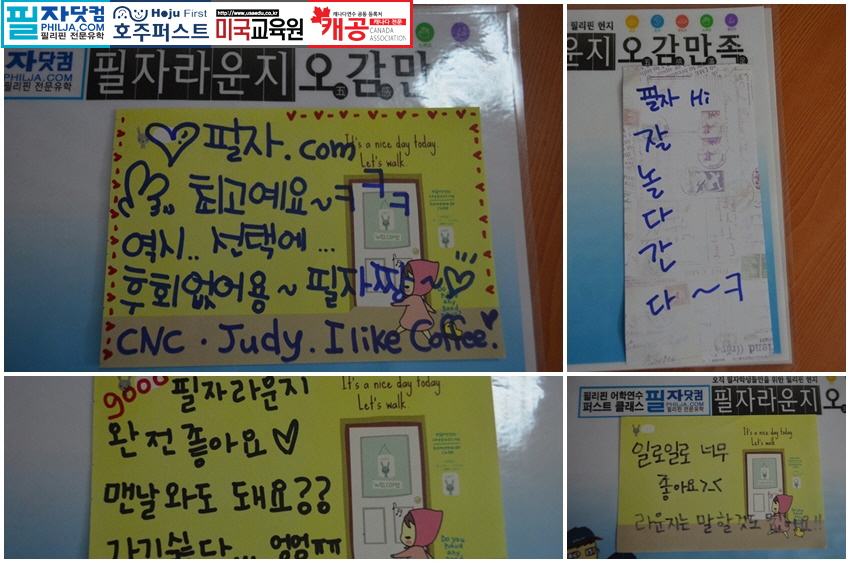 필자닷컴
PHILJA.COM
필리핀 전문유학
Hoju First
호주퍼스트
http://www.usaedu.co.kr
미국교육원
캐나다연수 공동 등록처
캐공 캐나다 전문
CANADA ASSOCIATION
자닷컴
PHILJA.COM
필리핀 전문유학
필자라운지 오감만
It's a nice day today.
Let's walk.
필자.com
최고예요~ㅋㅋㅋ
역시.. 선택에 ...
후회없어용~ 필자짱~
WELCOME
CNC. Judy. I like Coffee.
필리핀 현지
운지 오감만족
필자 Hi
잘
놀
다
간
다~ㅋ
It's a nice day today.
Let's walk.
good 필자라운지
완전좋아요
맨날 와도 돼요??
가기싫다... 엉엉ㅠㅠ
WELCOME
Do you have any good
오직 필자학생들만을 위한 필리핀 현지
필리핀 어학연수
퍼스트 클래스
필자닷컴
PHILJA.COM
필리핀 전문유학
필자라운지 오
It's a nice day today.
Let's walk.
일로일로 너무
좋아요>.<
라운지는 말할것도 없어요!!